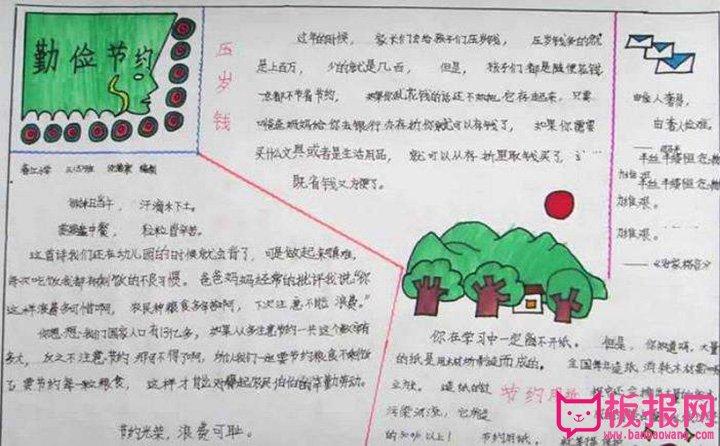 勤俭节约
压岁钱
过年的时候，家长们会给孩子们压岁钱，压岁钱多的就
是上百万，少的就是几百，但是，孩子们都是随便花钱
一点都不节省节约，如果你乱花钱的话还不如把它存起来，只要
爸爸妈妈给你去银行办存折你就可以存钱了，如果你需要
买什么文具或者是生活用品，就可以从存折里取钱买了，
既省钱又方便了。
锄禾日当午，汗滴禾下土。
谁知盘中餐，粒粒皆辛苦。
这首诗我们还在幼儿园的时候就会背了，可是做起来很难，
每次吃饭我都有剩饭的不良习惯。爸爸妈妈经常的批评我说“你
这样浪费多可惜啊，农民种粮食多辛苦啊，下次注意不能浪费。”
你想想我们国家人口有13亿多，如果人人注意节约一点这个数字有
多大，反之不注意节约那可不得了啊，所以我们一定要节约粮食不剩饭
要节约每一粒粮食，这样才能对得起农民伯伯的辛勤劳动。
节约光荣，浪费可耻。
由俭入奢易，
由奢入俭难。
半丝半缕恒念物力维艰。
你在学习中一定离不开纸。但是，你知道吗，大量
的纸是用木材所制造而成的。全国每年造纸消耗木材
立方米。造纸的过
节约用纸
污染河流，它所造
的30%以上！节约用纸，
板报网
www.banbaowang.com